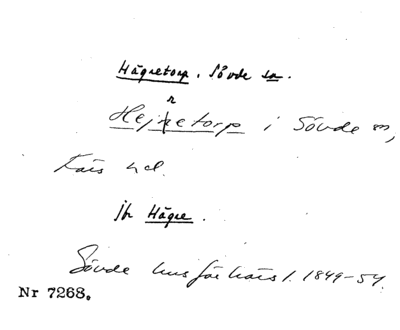 Hägretorp, Sövde sn.
Hejretorp i Sövde sn,
Färs hd.
jfr Hägre.
Sövde husförhörsl. 1849-54.
Nr 7268.